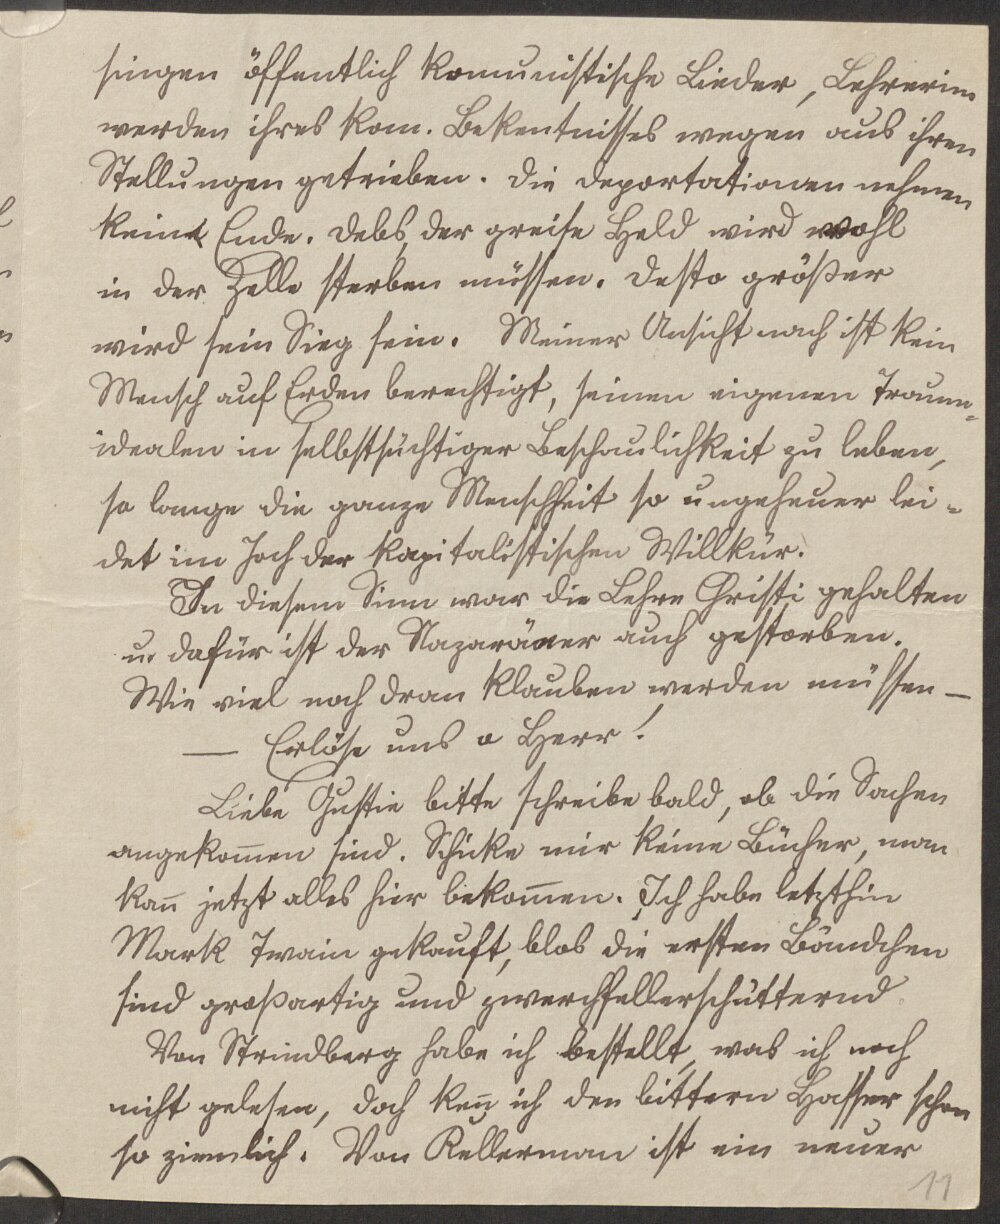 singen öffentlich komunistische Lieder, Lehrerinn
werden ihres kom. Bekentnisses wegen aus ihren
Stellungen getrieben. Die Deportationen nehmen
kein Ende. Debs, der greise Held wird wohl
in der Zelle sterben müssen. Desto größer
wird sein Sieg sein. Meiner Ansicht nach ist kein
Mensch auf Erden berechtigt, seinen eigenen Traum-
idealen in selbstsüchtiger Beschaulichkeit zu leben,
so lange die ganze Menschheit so ungeheuer lei-
det im Joch der kapitalistischen Willkür.
In diesem Sinn war die Lehre Christi gehalten
u. dafür ist der Nazaräner auch gestorben.
Wie viel noch dran klauben werden müssen —
— Erlöse uns o Herr!
Liebe Gustie bitte schreibe bald, ob die Sachen
angekom̅en sind. Schicke mir keine Bücher, man
kan̅ jetzt alles hier bekom̅en. Ich habe letzthin
Mark Twain gekauft, blos die ersten Bändchen
sind großartig und zwerchfellerschütternd
Von Strindberg habe ich bestellt, was ich noch
nicht gelesen, doch ken̅ ich den bittern Hasser schon
so ziemlich. Von Kellerman ist ein neuer
11